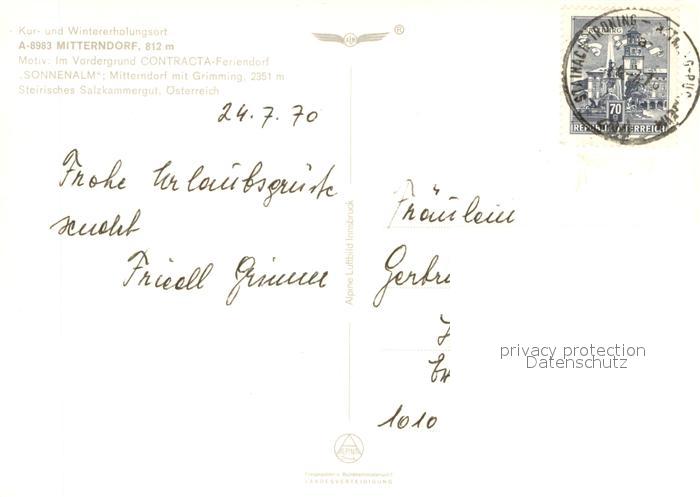 Kur- und Wintererholungsort
A-8983 MITTERNDORF, 812 m
Motiv: Im Vordergrund CONTRACTA-Feriendorf
„SONNENALM“; Mitterndorf mit Grimming, 2351 m
Steirisches Salzkammergut, Österreich
®
24.7.70
Frohe Urlaubsgrüße
sendet
Friedl
Alpine Luftbild Innsbruck
STAINACH-IRDNING
70
REPUBLIK ÖSTERREICH
Fräulein
Gertr
1010
privacy protection
Datenschutz
ALPINE
LANDESVERTEIDIGUNG